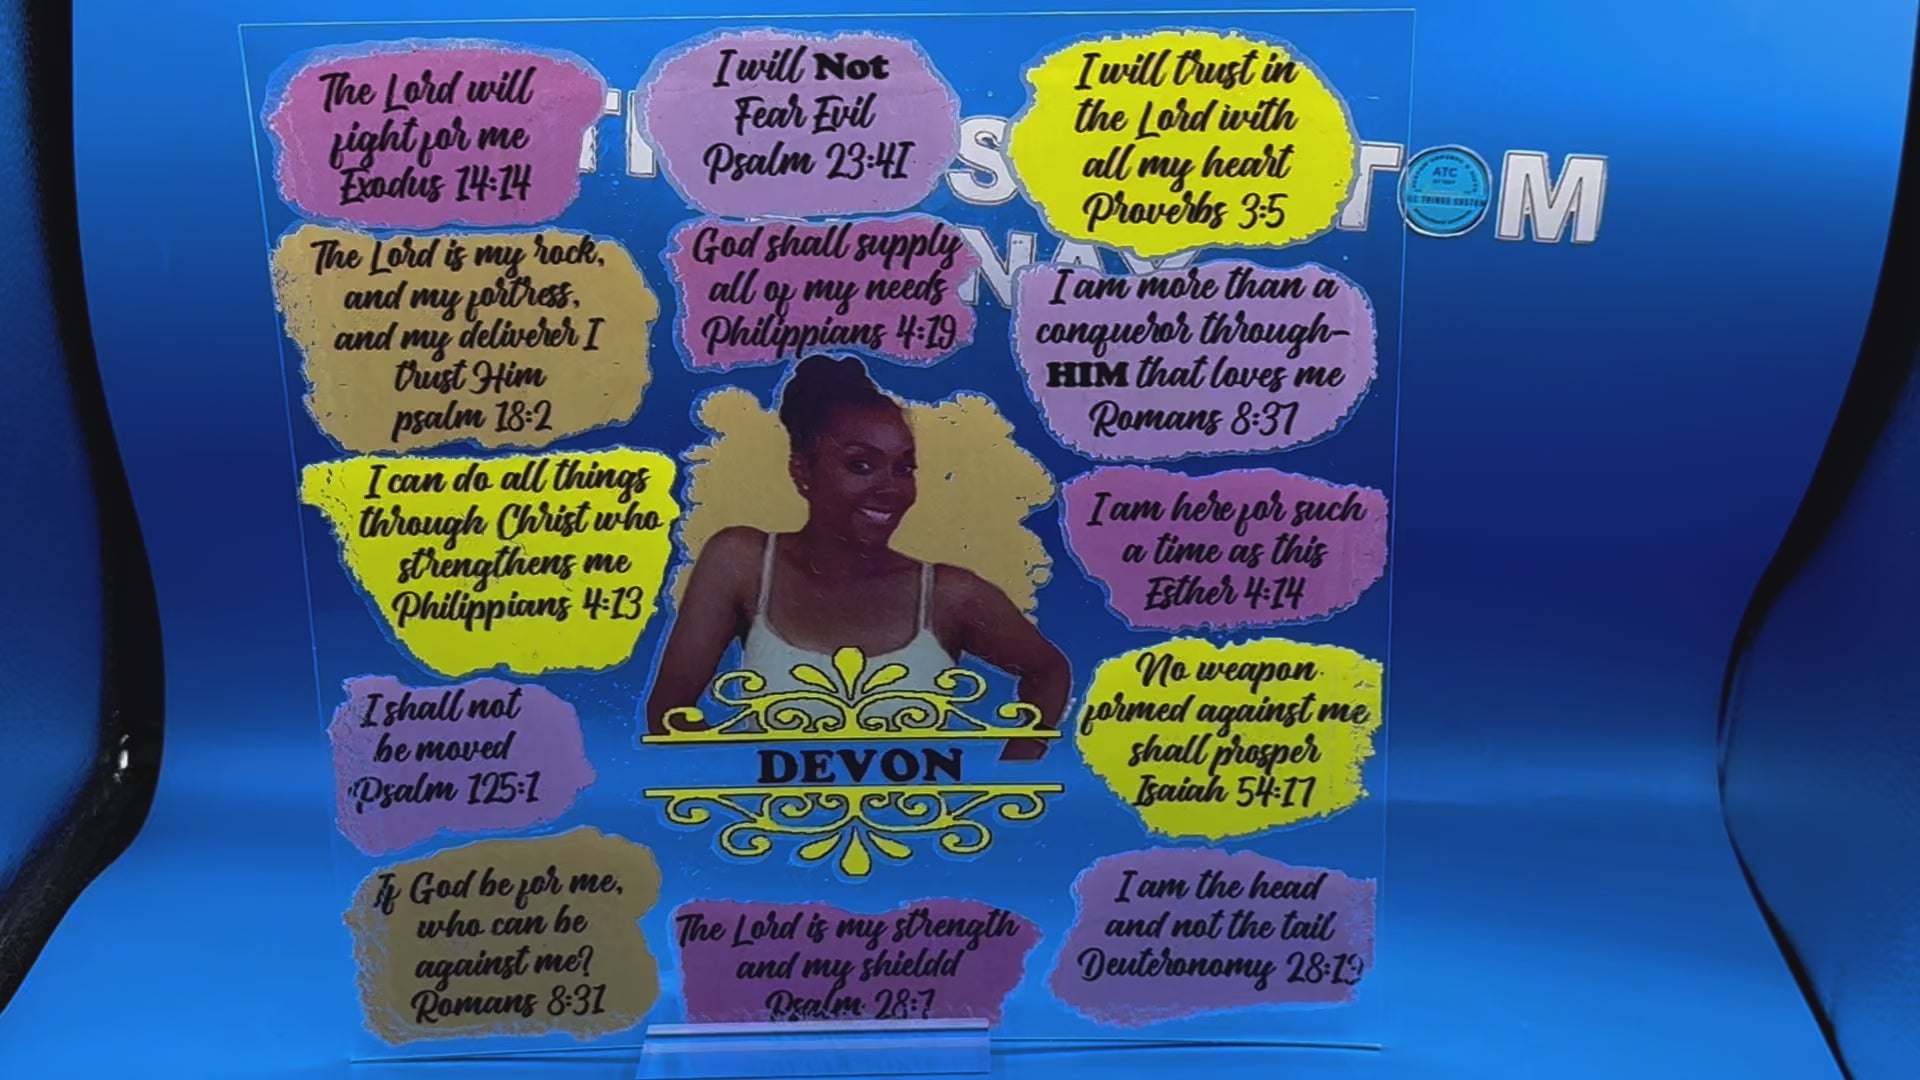 The Lord will
fight for me
Exodus 14:14
I will Not
Fear Evil
Psalm 23:4I
I will trust in
the Lord with
all my heart
Proverbs 3:5
The Lord is my rock,
and my fortress,
and my deliverer I
trust Him
psalm 18:2
God shall supply
all of my needs
Philippians 4:19
I am more than a
conqueror through-
HIM that loves me
Romans 8:37
I can do all things
through Christ who
strengthens me
Philippians 4:13
I am here for such
a time as this
Esther 4:14
I shall not
be moved
Psalm 125:1
DEVON
No weapon
formed against me
shall prosper
Isaiah 54:17
If God be for me,
who can be
against me?
Romans 8:31
The Lord is my strength
and my shieldd
Psalm 28:7
I am the head
and not the tail
Deuteronomy 28:13
ATC